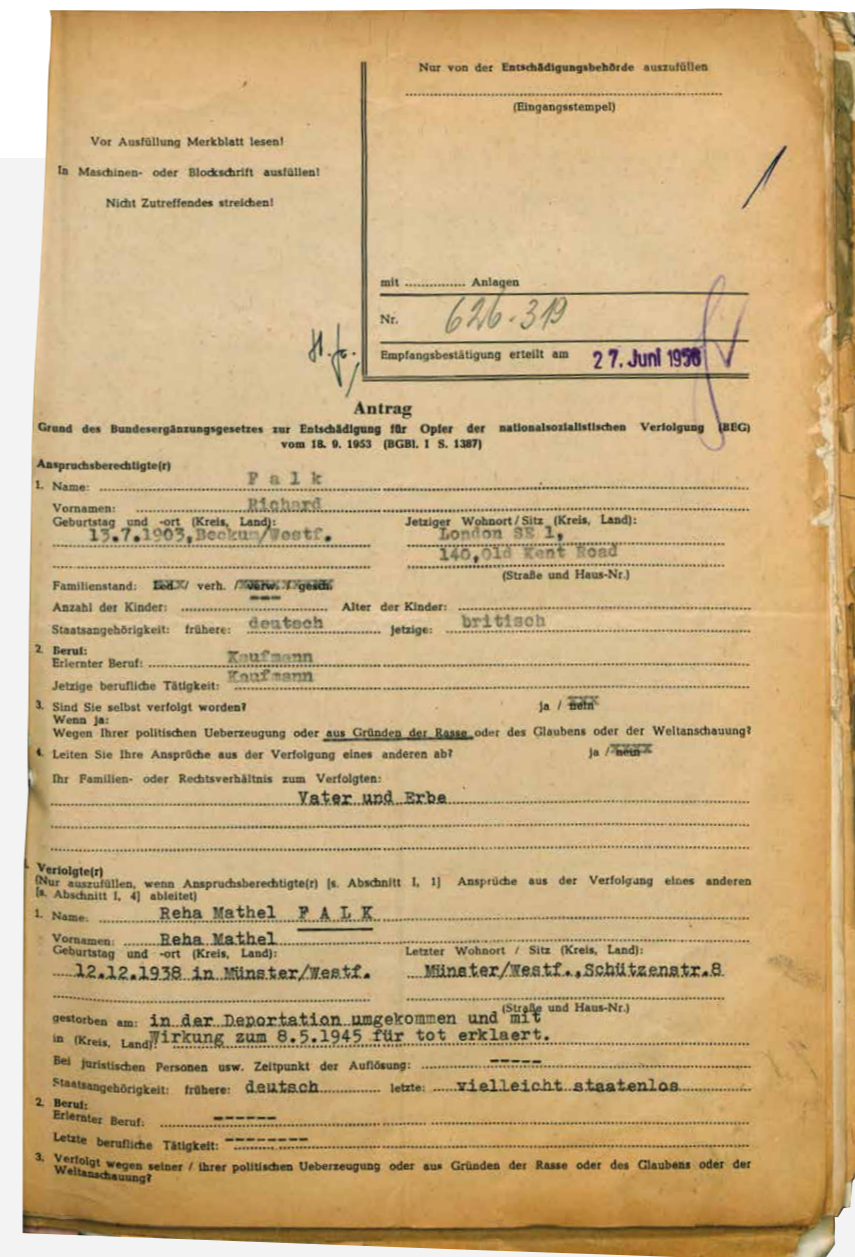 Nur von der Entschädigungsbehörde auszufüllen
(Eingangsstempel)
Vor Ausfüllung Merkblatt lesen!
In Maschinen- oder Blockschrift ausfüllen!
Nicht Zutreffendes streichen!
mit ............... Anlagen
Nr. 626-319
Empfangsbestätigung erteilt am 27. Juni 1956
Antrag
Grund des Bundesergänzungsgesetzes zur Entschädigung für Opfer der nationalsozialistischen Verfolgung (BEG)
vom 18. 9. 1953 (BGBl. I S. 1387)
Anspruchsberechtigte(r)
1. Name: Falk
Vornamen: Richard
Geburtstag und -ort (Kreis, Land): Jetziger Wohnort / Sitz (Kreis, Land):
13.7.1903, Beckum/Westf. London SE 1,
140, Old Kent Road
(Straße und Haus-Nr.)
Familienstand: led. / verh. / verw. / gesch.
Anzahl der Kinder: --- Alter der Kinder:
Staatsangehörigkeit: frühere: deutsch jetzige: britisch
2. Beruf:
Erlernter Beruf: Kaufmann
Jetzige berufliche Tätigkeit: Kaufmann
3. Sind Sie selbst verfolgt worden? ja / nein
Wenn ja:
Wegen Ihrer politischen Ueberzeugung oder aus Gründen der Rasse oder des Glaubens oder der Weltanschauung?
4. Leiten Sie Ihre Ansprüche aus der Verfolgung eines anderen ab? ja / nein
Ihr Familien- oder Rechtsverhältnis zum Verfolgten:
Vater und Erbe
Verfolgte(r)
(Nur auszufüllen, wenn Anspruchsberechtigte(r) [s. Abschnitt I, 1] Ansprüche aus der Verfolgung eines anderen
[s. Abschnitt I, 4] ableitet)
1. Name: Reha Mathel FALK
Vornamen: Reha Mathel
Geburtstag und -ort (Kreis, Land): Letzter Wohnort / Sitz (Kreis, Land):
12.12.1938 in Münster/Westf. Münster/Westf., Schützenstr.8
(Straße und Haus-Nr.)
gestorben am: in der Deportation umgekommen und mit
in (Kreis, Land): Wirkung zum 8.5.1945 für tot erklaert.
Bei juristischen Personen usw. Zeitpunkt der Auflösung: -----
Staatsangehörigkeit: frühere: deutsch letzte: vielleicht staatenlos
2. Beruf:
Erlernter Beruf: ------
Letzte berufliche Tätigkeit: --------
3. Verfolgt wegen seiner / ihrer politischen Ueberzeugung oder aus Gründen der Rasse oder des Glaubens oder der
Weltanschauung?